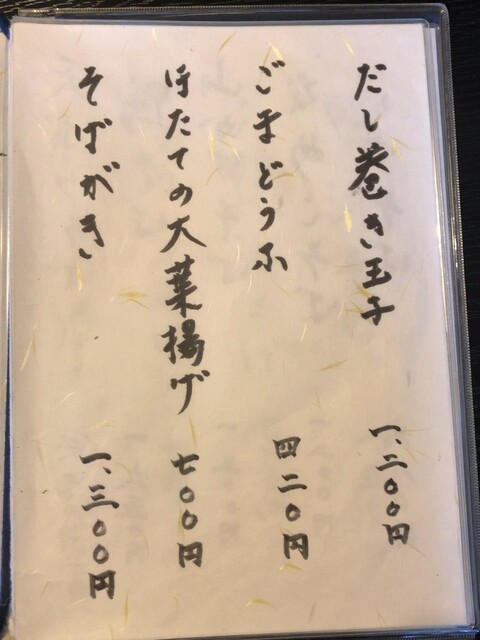 だし巻き玉子 一、二〇〇円
ごまどうふ 四二〇円
ほたての大葉揚げ 七〇〇円
そばがき 一、三〇〇円